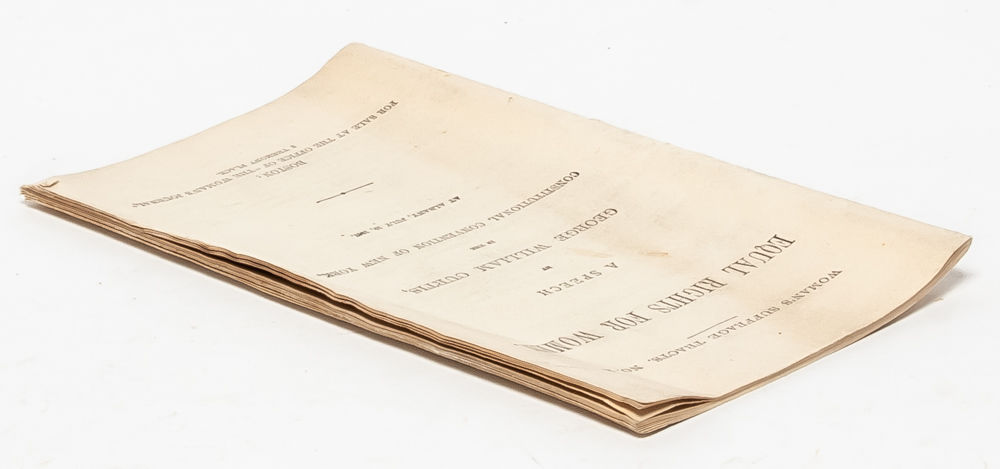 WOMAN'S SUFFRAGE TRACTS, NO.
EQUAL RIGHTS FOR WOM
A SPEECH
BY
GEORGE WILLIAM CURTIS,
IN THE
CONSTITUTIONAL CONVENTION OF NEW YORK,
AT ALBANY, JULY 19, 1867.
BOSTON:
FOR SALE AT THE OFFICE OF "THE WOMAN'S JOURNAL,
TREMONT PLACE.